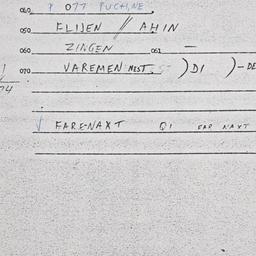 040 077 PUCHJNE
050 FLIJEN // AHIN
060 ZINGEN 061 —
070 VAREMEN NEST. S- ) DI ) - DE
74
√ FARE-NAXT QI FAR NAXT